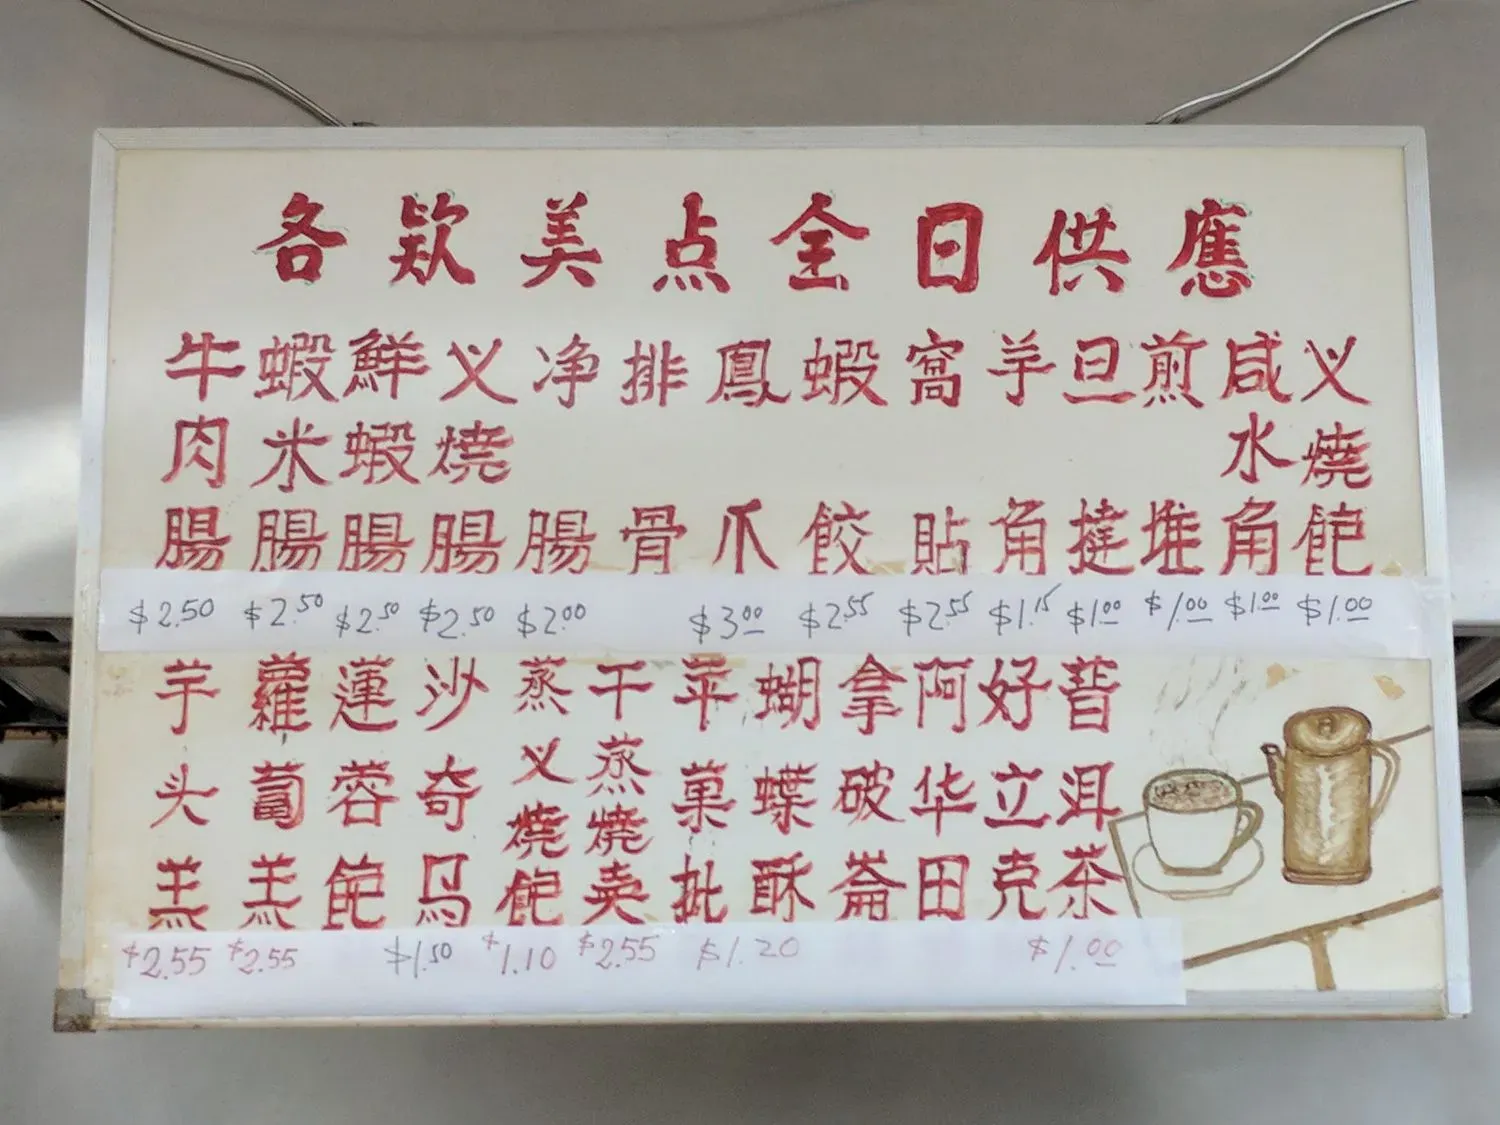 各欵美点全日供應
牛肉腸
蝦米腸
鮮蝦腸
义燒腸
净腸
排骨
鳳爪
蝦餃
窩貼
芋角
旦撻
煎堆
咸水角
义燒飽
$2.50 $2.50 $2.50 $2.50 $2.00 $3.00 $2.55 $2.55 $1.15 $1.00 $1.00 $1.00 $1.00
芋头羔
蘿蔔羔
蓮蓉飽
沙奇马
蒸义燒飽
干蒸燒卖
苹菓批
蝴蝶酥
拿破崙
阿华田
好立克
普洱茶
$2.55 $2.55 $1.50 $1.10 $2.55 $1.20 $1.00